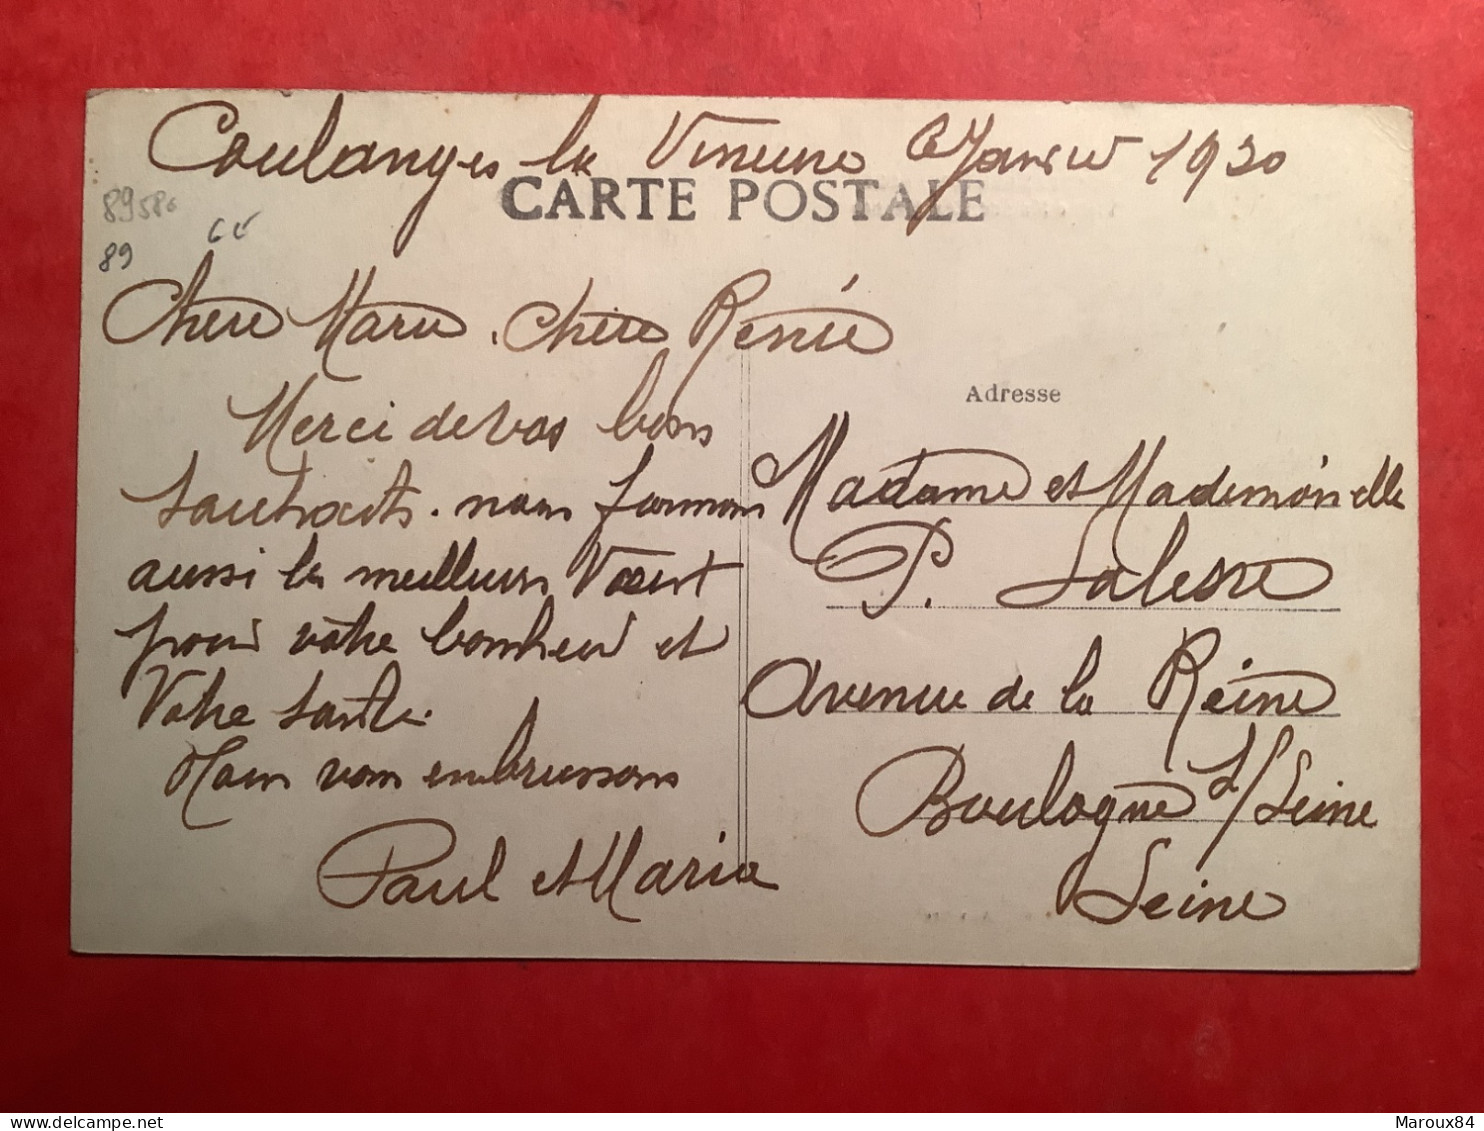 Coulanges la Vineuse 6 Janvier 1930
CARTE POSTALE
89580
89
Chère Marie. Chère Renée
Merci de vos bons
souhaits. nous formons
aussi les meilleurs Voeux
pour votre bonheur et
Votre santé.
Nous vous embrassons
Paul et Maria
Adresse
Madame et Mademoiselle
P.
Avenue de la Reine
Boulogne s/Seine
Seine
Maroux84